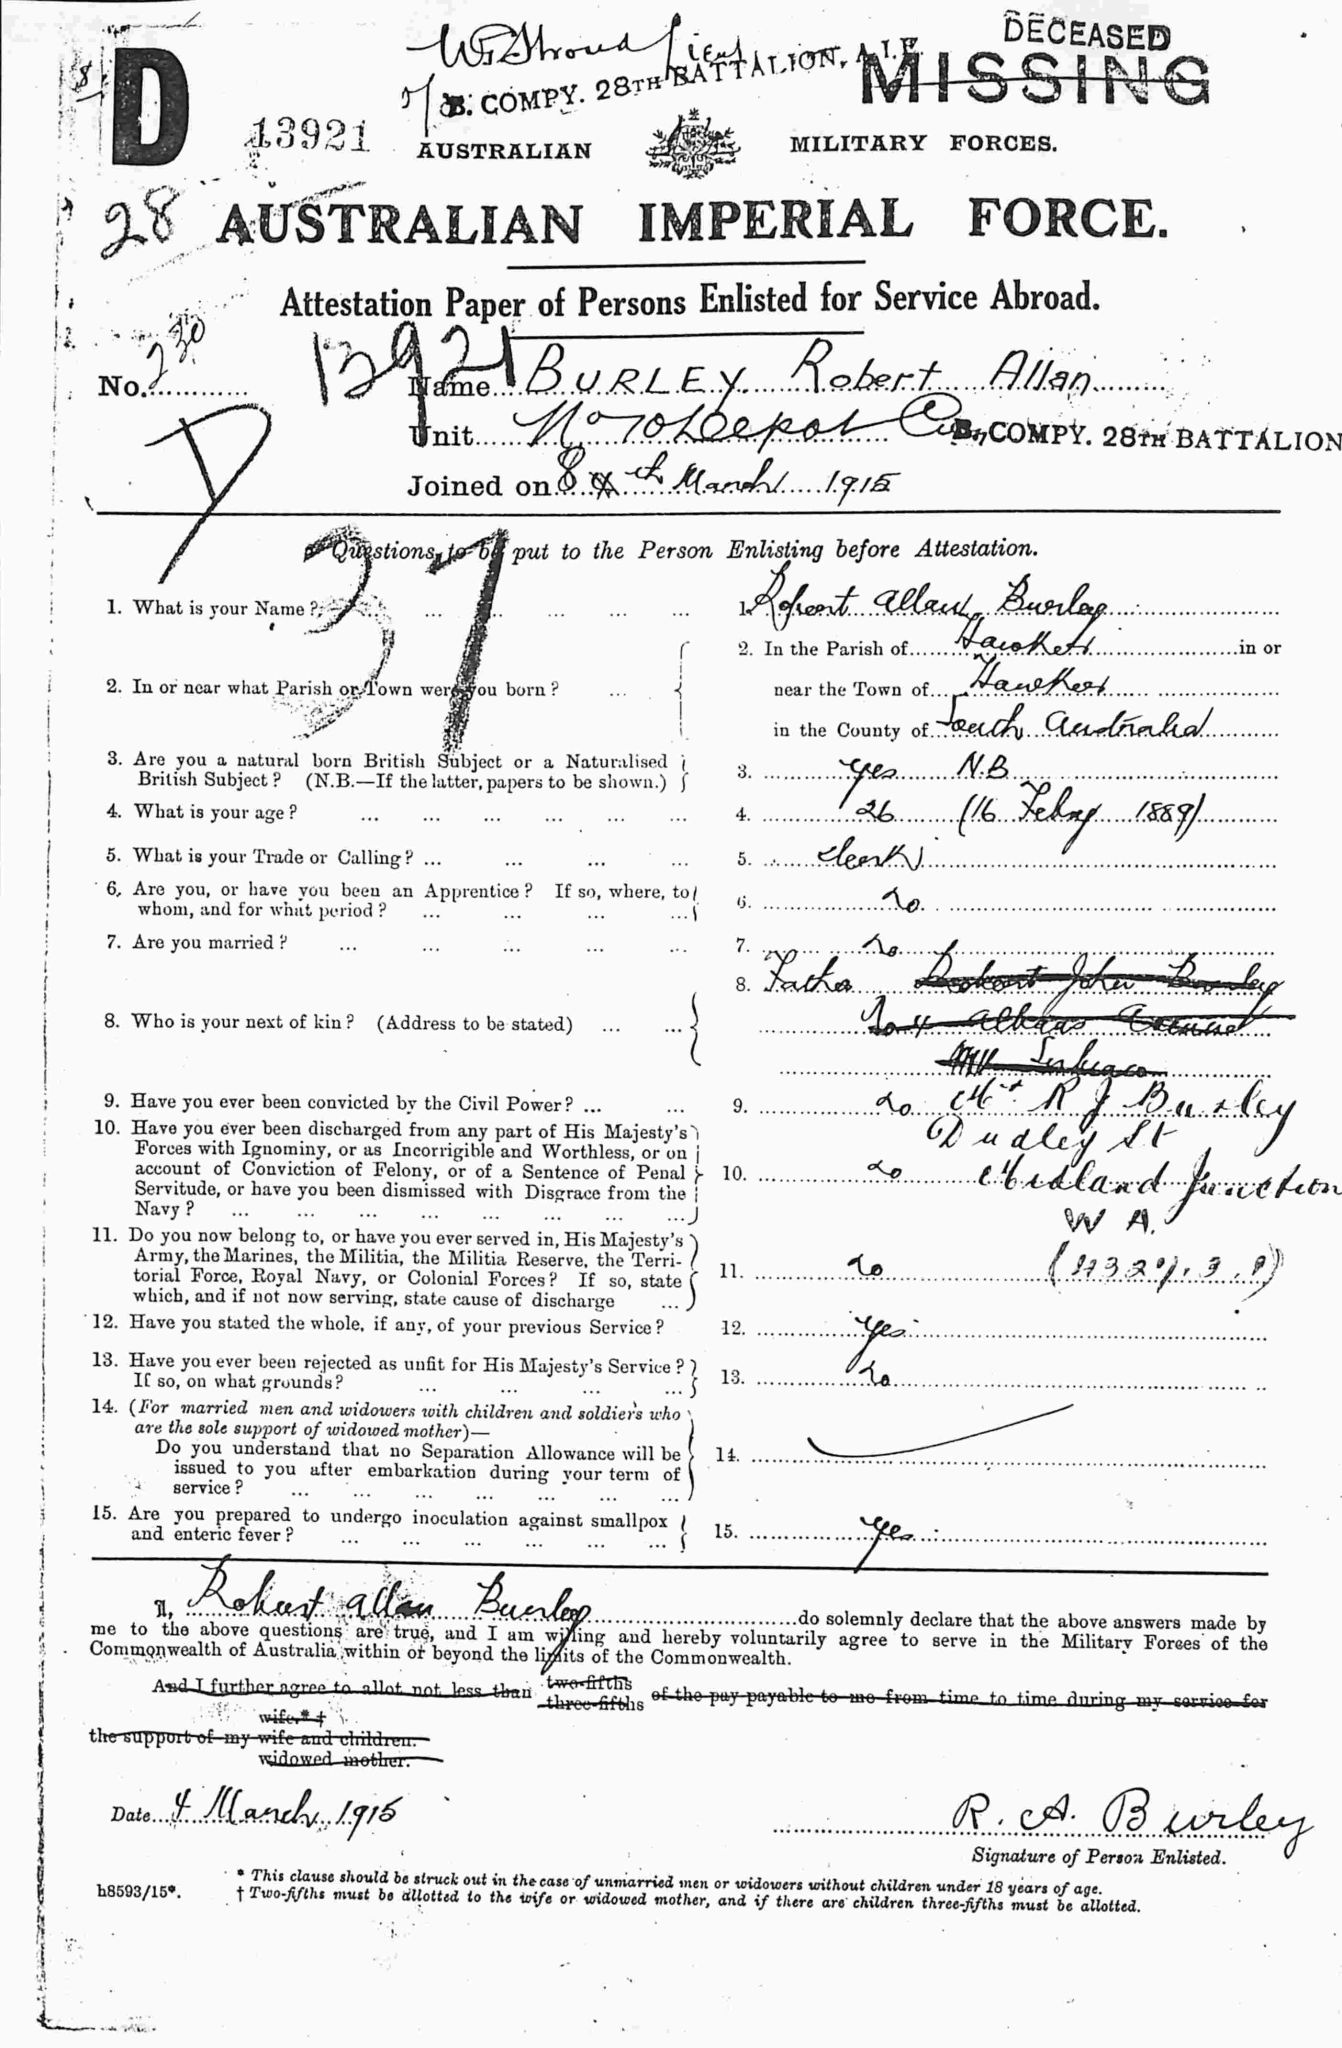 W Stroud Lieut
DECEASED
MISSING
O/C B. COMPY. 28TH BATTALION, A.I.F.
D
13921
AUSTRALIAN MILITARY FORCES.
28
AUSTRALIAN IMPERIAL FORCE.
Attestation Paper of Persons Enlisted for Service Abroad.
No. 230
13921
Name BURLEY Robert Allan
Unit No 70 Depot Coy B. COMPY. 28TH BATTALION
Joined on 8th March 1915
D
37
Questions to be put to the Person Enlisting before Attestation.
1. What is your Name? ... 1. Robert Allan Burley
2. In or near what Parish or Town were you born? ... 2. In the Parish of Hawker in or
near the Town of Hawker
in the County of South Australia
3. Are you a natural born British Subject or a Naturalised
British Subject? (N.B.—If the latter, papers to be shown.) 3. Yes N.B
4. What is your age? ... 4. 26 (16 Febry 1889)
5. What is your Trade or Calling? ... 5. Clerk
6. Are you, or have you been an Apprentice? If so, where, to
whom, and for what period? ... 6. No
7. Are you married? ... 7. No
8. Who is your next of kin? (Address to be stated) ... 8. Father Robert John Burley
Subiaco
9. Have you ever been convicted by the Civil Power? ... 9. No
Mr R J Burley
Dudley St
Midland Junction
W A.
10. Have you ever been discharged from any part of His Majesty's
Forces with Ignominy, or as Incorrigible and Worthless, or on
account of Conviction of Felony, or of a Sentence of Penal
Servitude, or have you been dismissed with Disgrace from the
Navy? ... 10. No
11. Do you now belong to, or have you ever served in, His Majesty's
Army, the Marines, the Militia, the Militia Reserve, the Terri-
torial Force, Royal Navy, or Colonial Forces? If so, state
which, and if not now serving, state cause of discharge ... 11. No
12. Have you stated the whole, if any, of your previous Service? 12. Yes
13. Have you ever been rejected as unfit for His Majesty's Service?
If so, on what grounds? ... 13. No
14. (For married men and widowers with children and soldiers who
are the sole support of widowed mother)—
Do you understand that no Separation Allowance will be
issued to you after embarkation during your term of
service? ... 14.
15. Are you prepared to undergo inoculation against smallpox
and enteric fever? ... 15. Yes
I, Robert Allan Burley do solemnly declare that the above answers made by
me to the above questions are true, and I am willing and hereby voluntarily agree to serve in the Military Forces of the
Commonwealth of Australia within or beyond the limits of the Commonwealth.
And I further agree to allot not less than two-fifths three-fifths of the pay payable to me from time to time during my service for
wife.* †
the support of my wife and children.
widowed mother.
Date 4 March 1915
R. A. Burley
Signature of Person Enlisted.
* This clause should be struck out in the case of unmarried men or widowers without children under 18 years of age.
h8593/15*. † Two-fifths must be allotted to the wife or widowed mother, and if there are children three-fifths must be allotted.